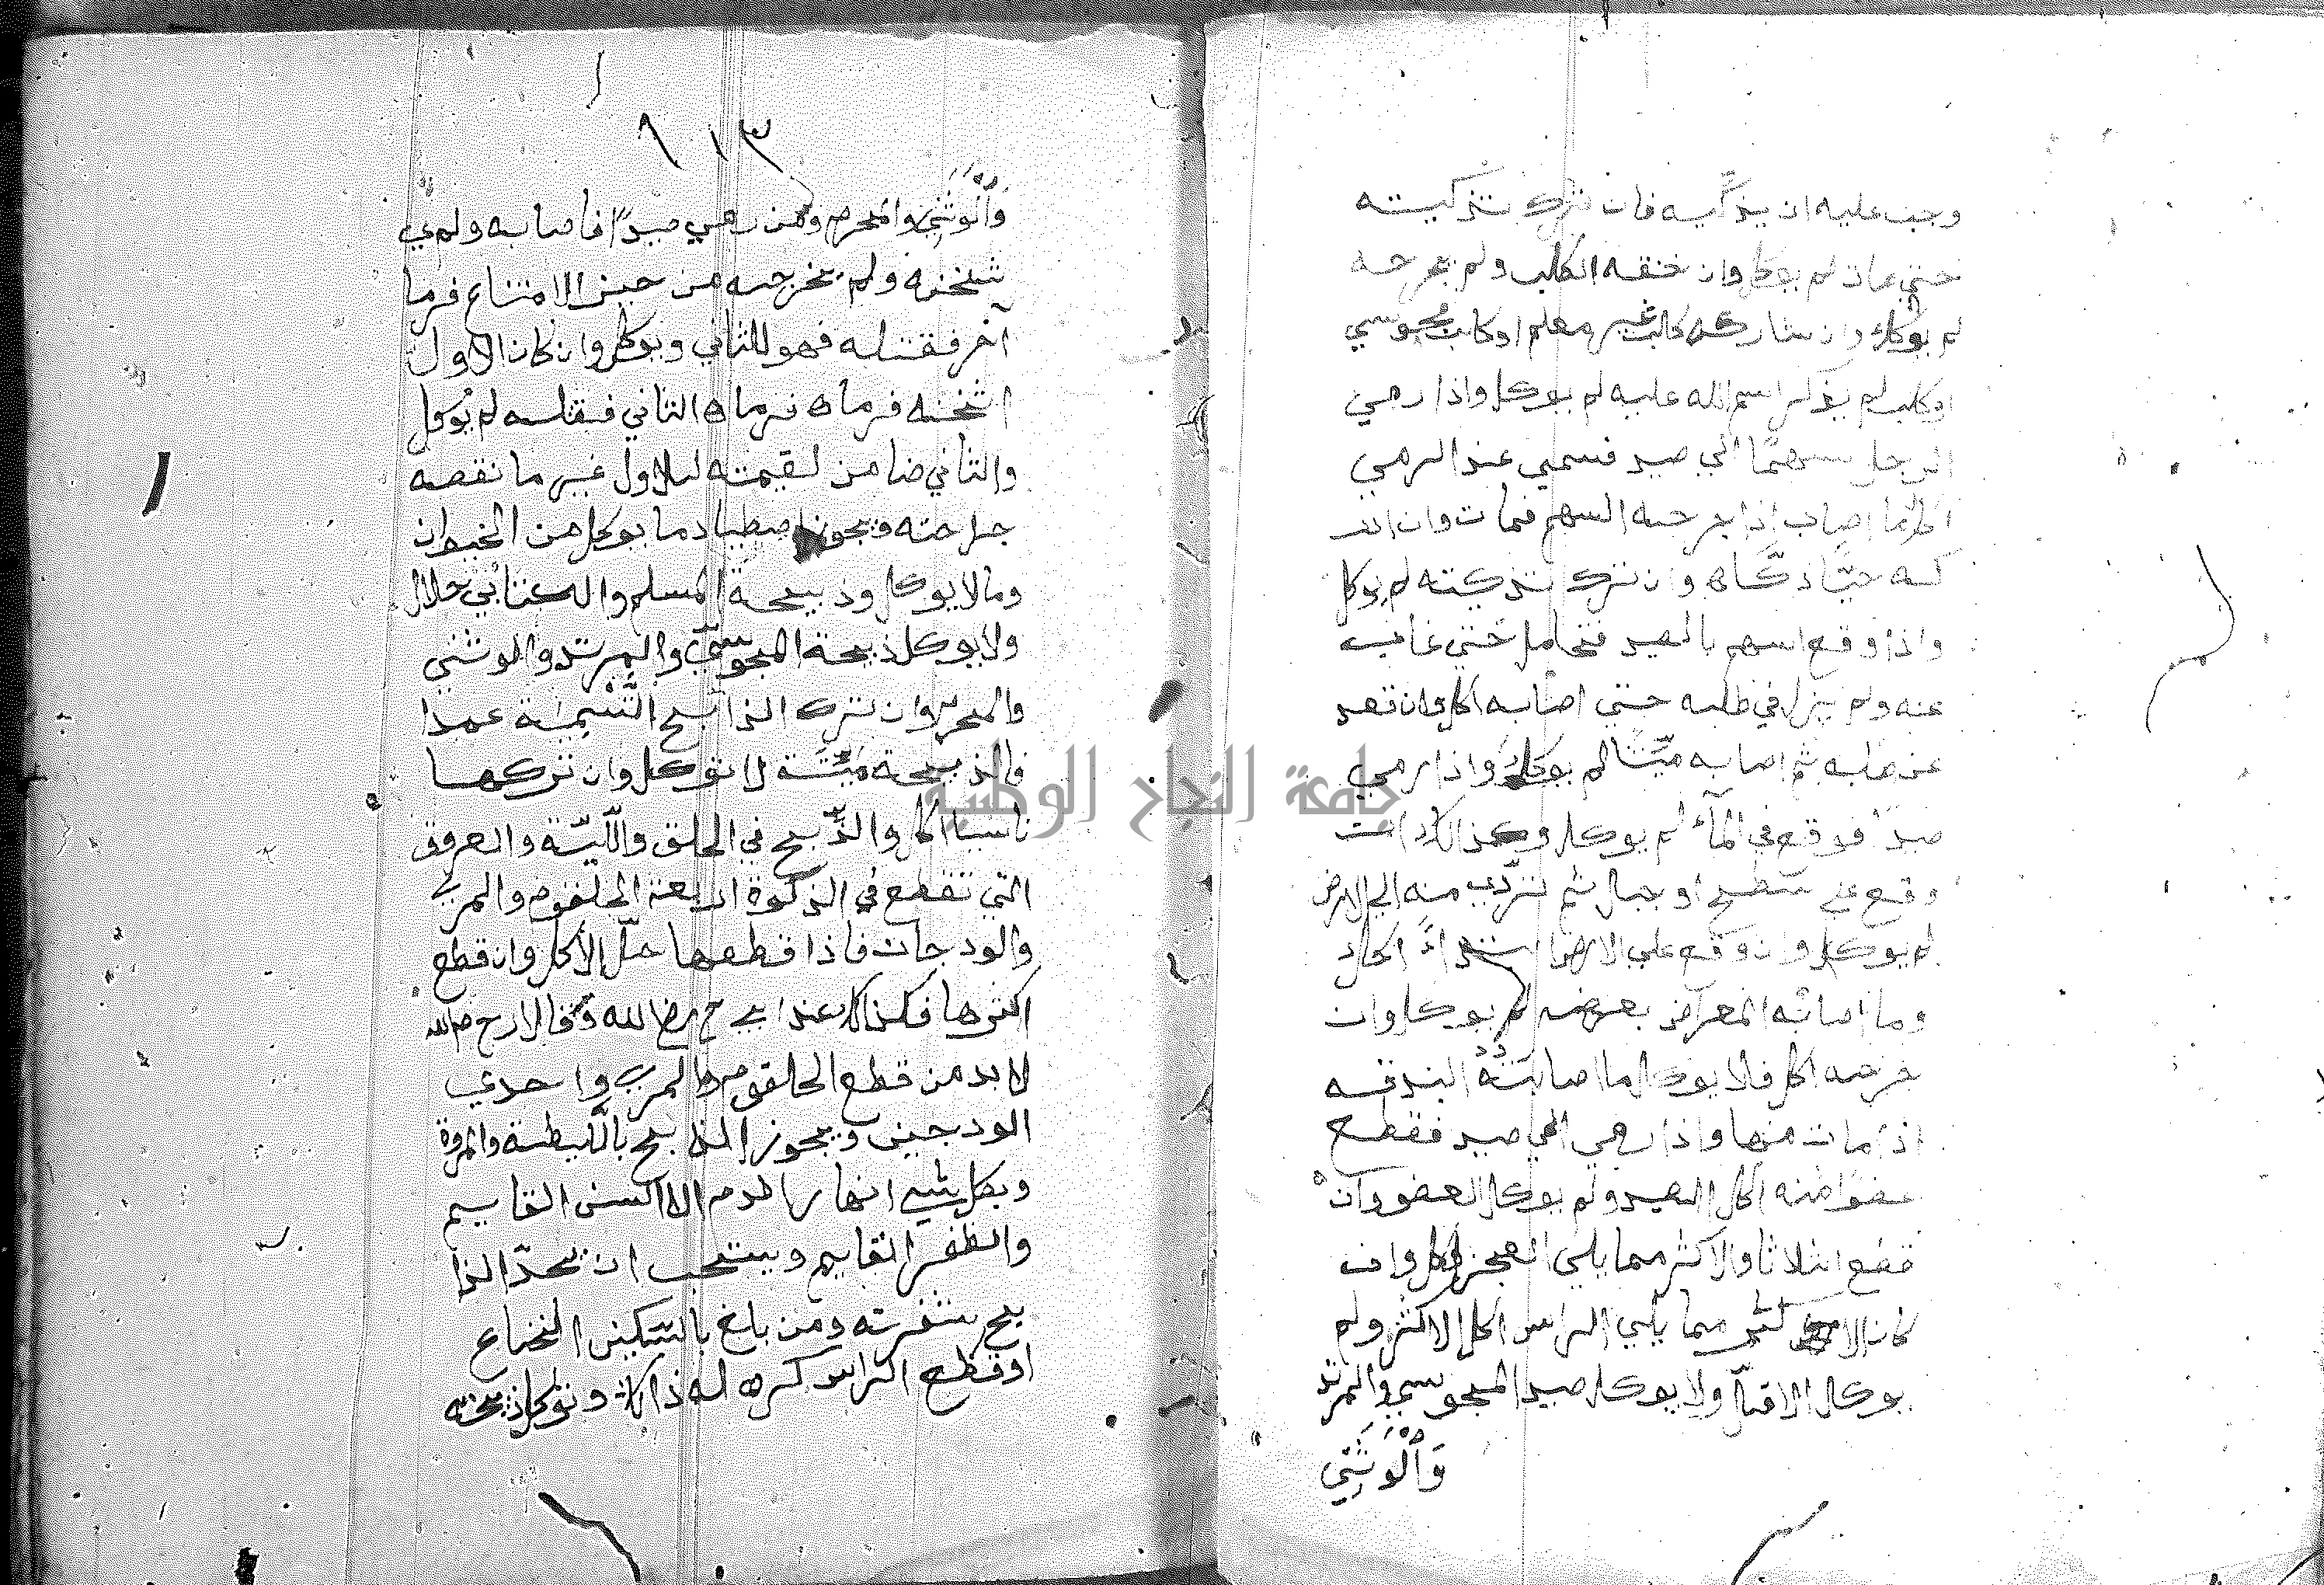 وجب عليه ان يذكّيه فان ترك تذكيته
حتي مات لم يوكل وان خنقه الكلب ولم يجرحه
لم يوكل وان شاركه كلب غير معلم او كلب مجوسي
او كلب لم يذكر اسم الله عليه لم يوكل واذا رمي
الرجل سهمًا الي صيد فسمي عند الرمي
اكل ما اصاب اذا جرحه السهم فمات وان اد
كه حيًّا ذكّاه وان ترك تذكيته لم يوكل
واذا وقع السهم بالصيد فتحامل حتي غاب
عنه ولم يزل في طلبه حتي اصابه اكل وان قعد
عن طلبه ثم اصابه ميّتا لم يوكل واذا رمي
صيدًا فوقع في المآء لم يوكل وكذالك ان
وقع علي سطح او جبل ثم تردّي منه الي الارض
لم يوكل وان وقع علي الارض ابتداءً اكل
وما اصابه المعراض بعرضه لم يوكل وان
جرحه اكل ولا يوكل ما اصابته البندقه
اذا مات منها واذا رمي الي صيد فقطع
عضوا منه اكل الصيد ولم يوكل العضو وان
قطع اثلاثا والاكثر مما يلي العجز اكل وان
كان الاكثر مما يلي الراس اكل الاكثر ولم
يوكل الاقلّ ولا يوكل صيد المجوسي والمرتد
وَالْوَثَنِي
٩١٣
وَالْوَثَنِي والمحرم ومن رمي صيدًا فاصابه ولم ي
ثخنه ولم يخرجه من حيز الامتناع فرما
آخر فقتله فهو للثاني ويوكل وان كان الاول
اثخنه فرماه فرماه الثاني فقتله لم يُوكل
والثاني ضامن لقيمته للاول غير ما نقصه
جراحته ويجوز اصطياد ما يوكل من الحيوان
وما لا يوكل وذبيحة المسلم والكتابي حلال
ولا يوكل ذبيحة المجوسيّ والمرتد والوثني
والمحرم وان ترك الذابح التَّسْمِيَة عمدا
فالذبيحة ميّتَة لا توكل وان تركها
ناسيا اكل والذّبح في الحلق واللّبّة والعروق
التي تقطع في الذكوة اربعة الحلقوم والمري
والودجان فاذا قطعها حلّ الاكل وان قطع
اكثرها فكذالك عند ابي ح رضي الله وقالا رح الله
لا بد من قطع الحلقوم والمري واحدي
الودجين ويجوز الذبح باللّيطة والمروة
وبكل شيي انهار الدم الا السن القايم
والظفر القايم ويستحب ان يحدّ الذا
بح شفرته ومن بلغ بالسّكين النخاع
او قطع الراس كره له ذالك وتوكل ذبيحته
جامعة النجاح الوطنية